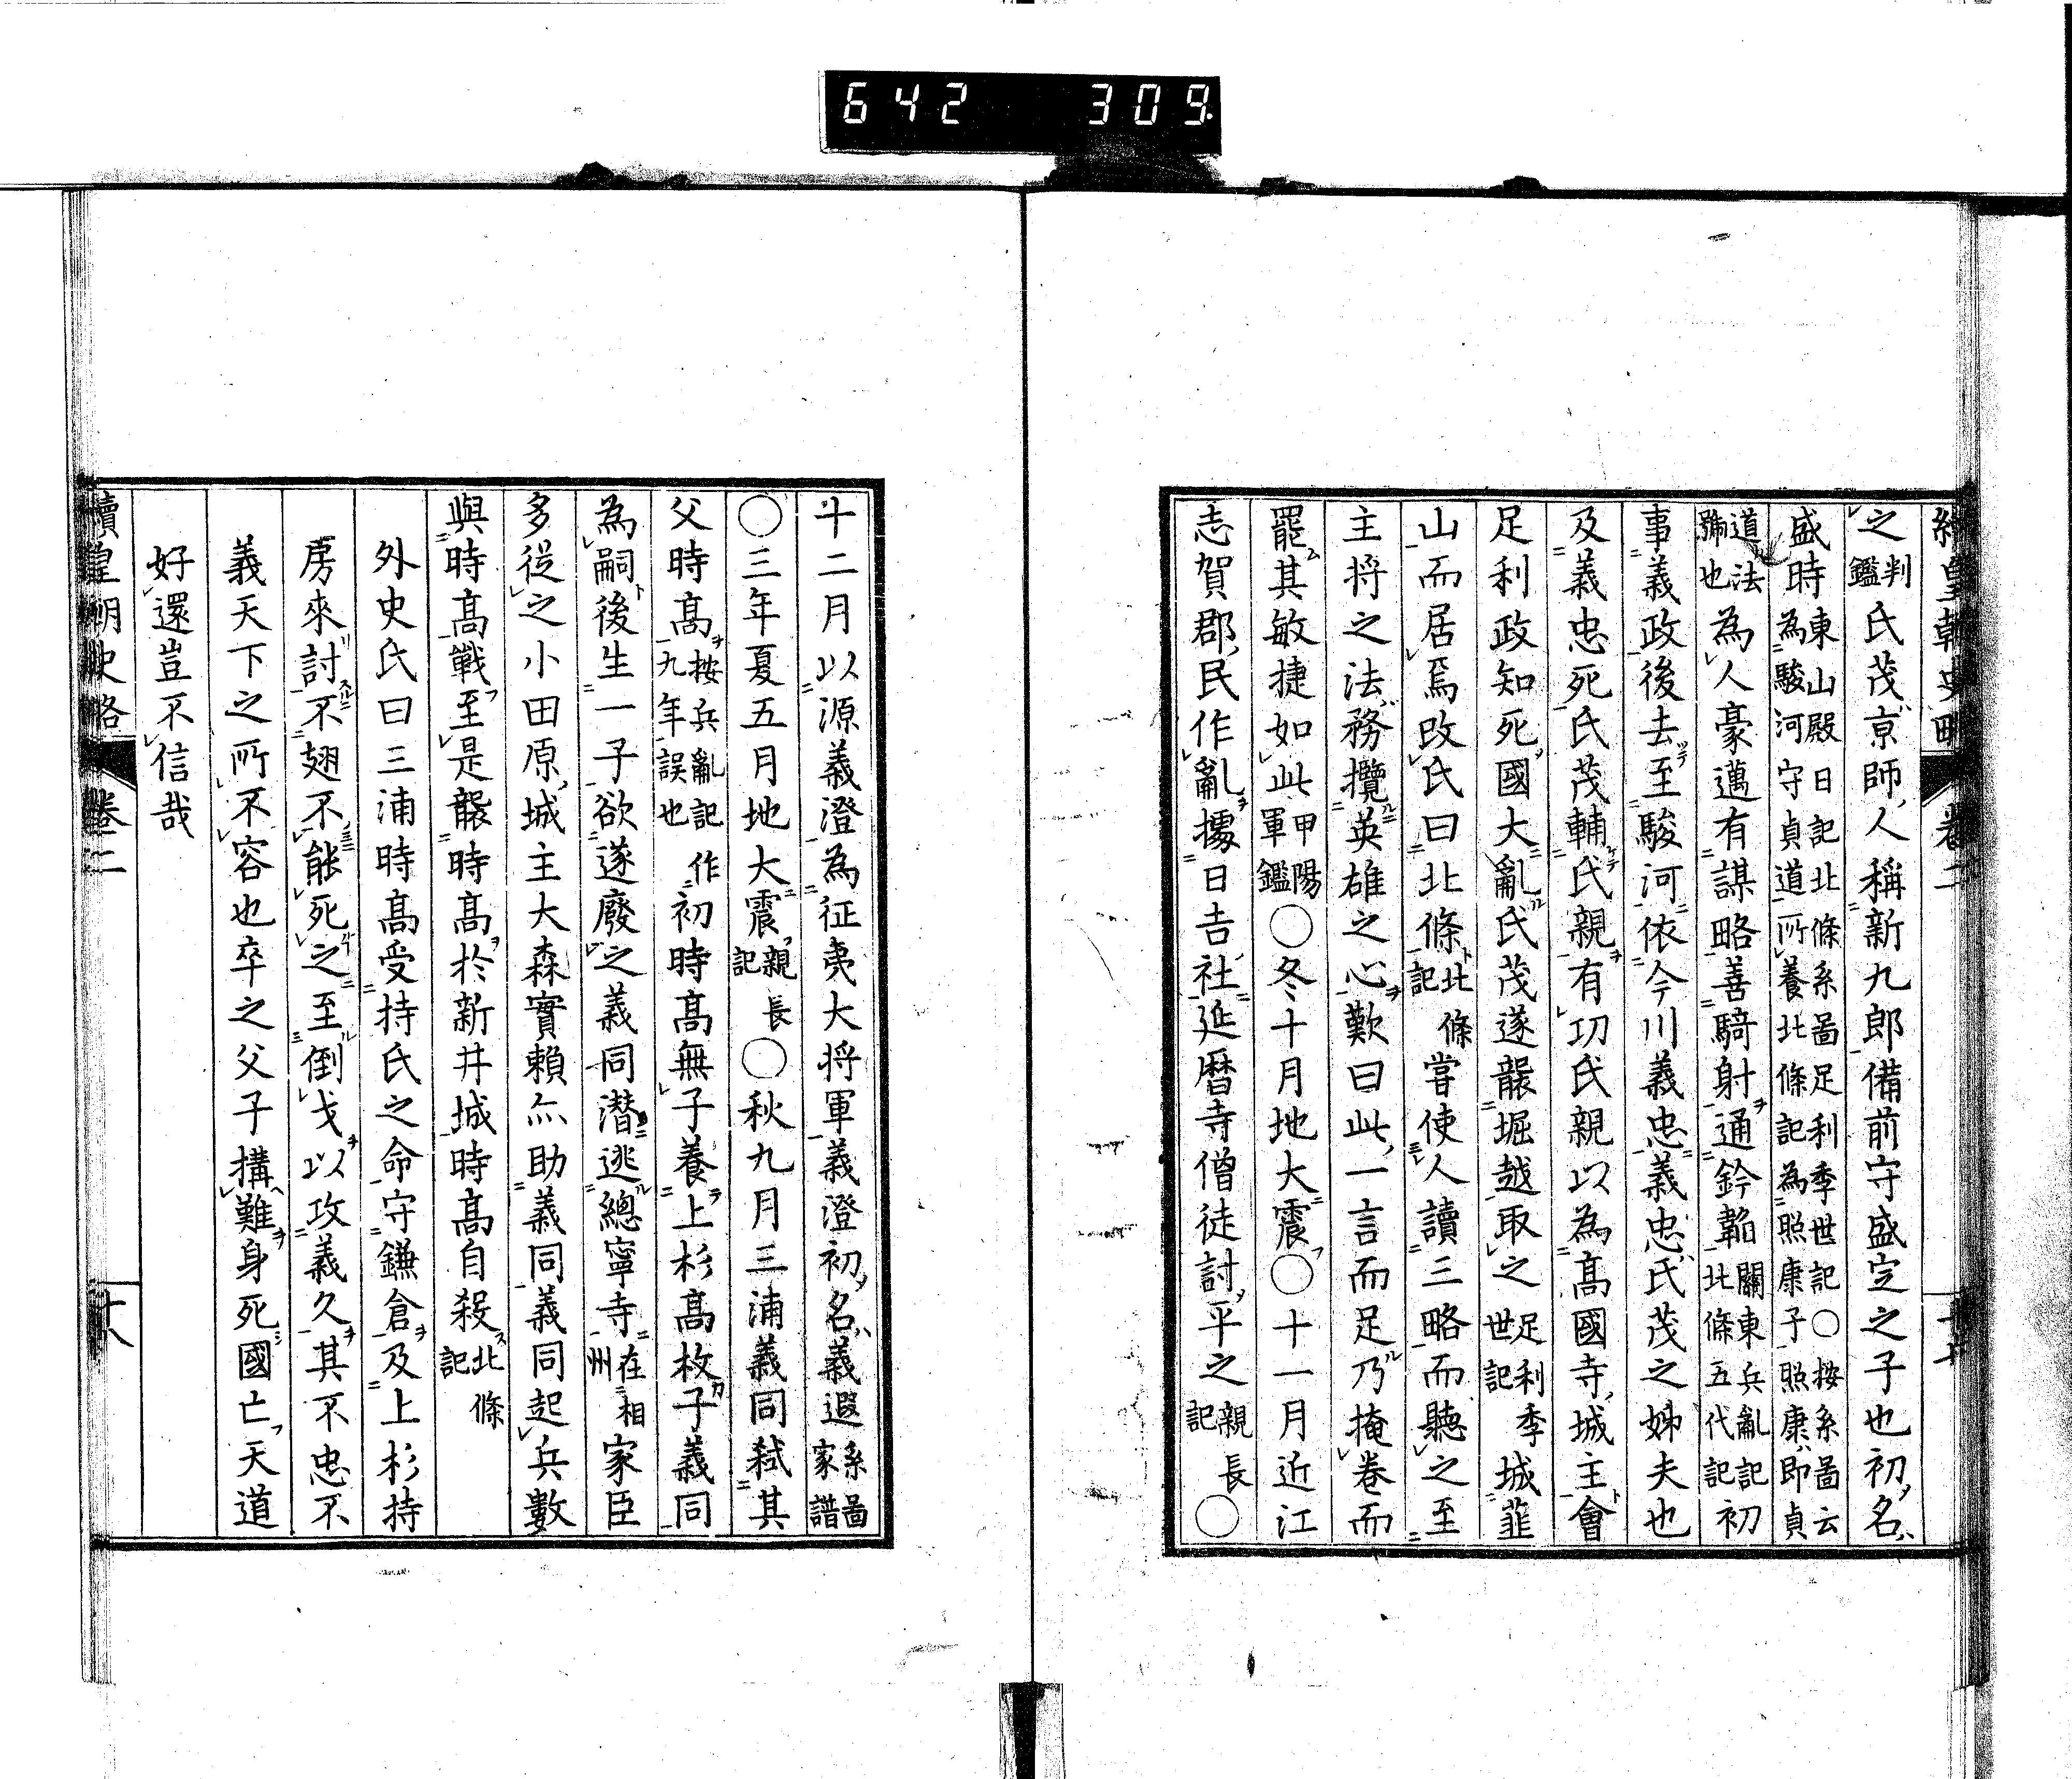 續皇朝史略 卷二 十七
之判鑑氏茂京師人稱新九郎備前守盛定之子也初名
盛時東山殿日記北條系圖足利季世記○按系圖云為駿河守貞道所養北條記為照康子照康即貞
道法號也為人豪邁有謀略善騎射通鈐韜關東兵亂記北條五代記初
事義政後去至駿河依今川義忠義忠氏茂之姊夫也
及義忠死氏茂輔氏親有功氏親以為髙國寺城主會
足利政知死國大亂氏茂遂襲堀越取之足利季世記城韮
山而居焉改氏曰北條北條記嘗使人讀三略而聽之至
主将之法務攬英雄之心歎曰此一言而足乃掩卷而
罷其敏捷如此甲陽軍鑑○冬十月地大震○十一月近江
志賀郡民作亂據日吉社延暦寺僧徒討平之親長記○
十二月以源義澄為征夷大将軍義澄初名義遐系圖家譜
○三年夏五月地大震親長記○秋九月三浦義同弑其
父時髙按兵亂記作九年誤也初時髙無子養上杉髙救子義同
為嗣後生一子欲遂廢之義同潜逃總寧寺在相州家臣
多從之小田原城主大森實賴亦助義同義同起兵數
與時髙戰至是襲時髙於新井城時髙自殺北條記
外史氏曰三浦時髙受持氏之命守鎌倉及上杉持
房來討不翅不能死之至倒戈以攻義久其不忠不
義天下之所不容也卒之父子搆難身死國亡天道
好還豈不信哉
續皇朝史略 卷二 十八
642 309